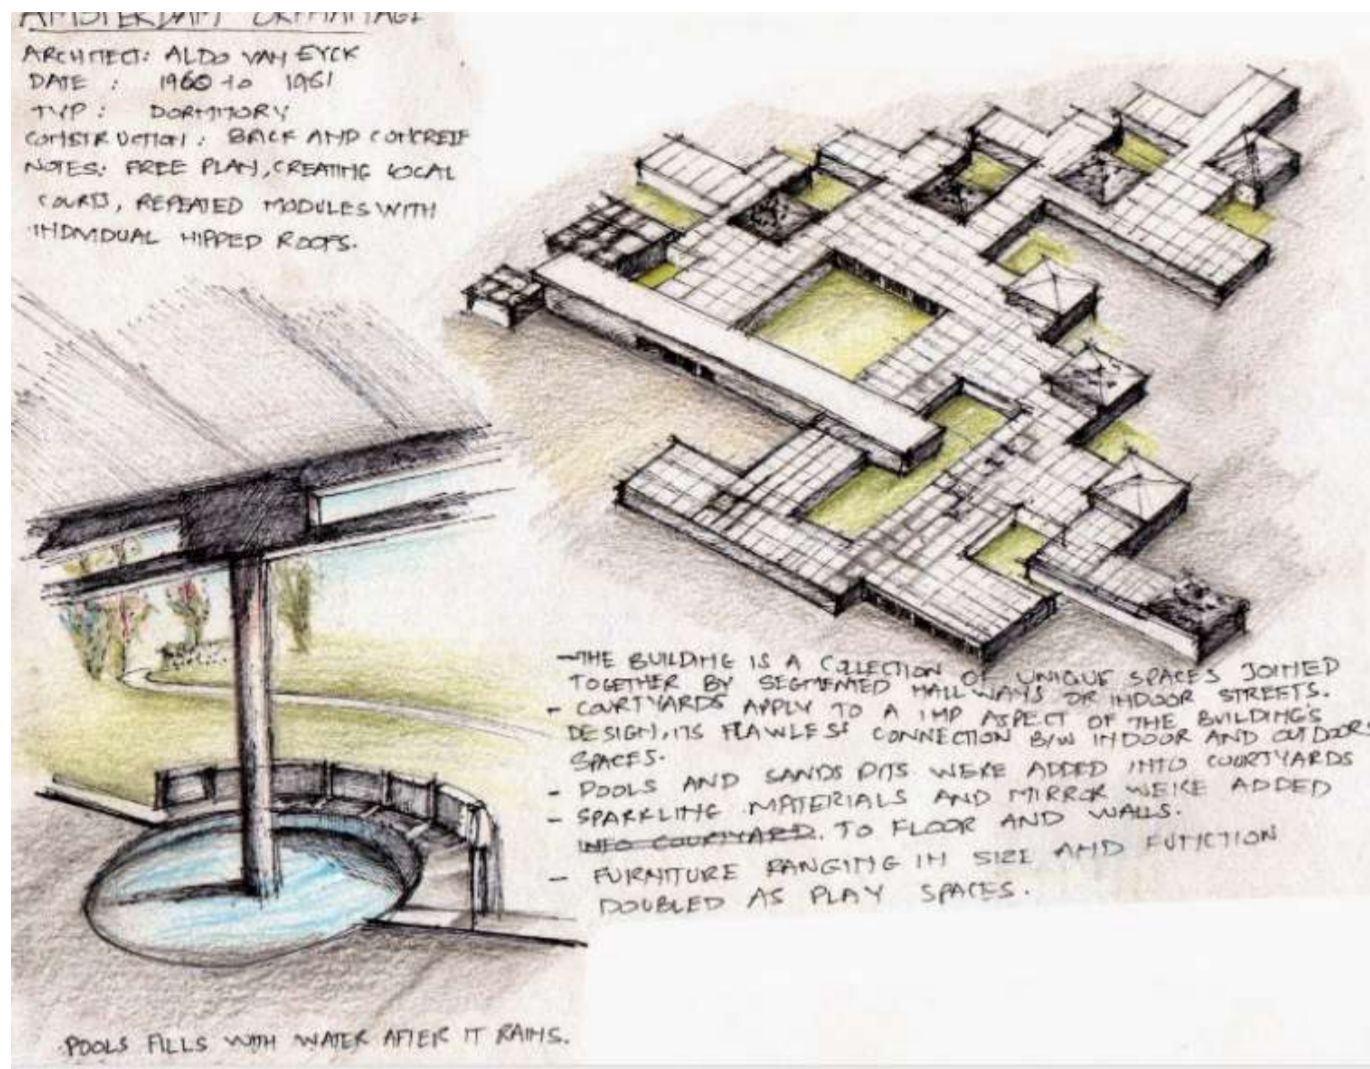 AMSTERDAM ORPHANAGE
ARCHITECT: ALDO VAN EYCK
DATE : 1960 to 1961
TYP : DORMITORY
CONSTRUCTION : BACK AND CONCRETE
NOTES: FREE PLAN, CREATING LOCAL
COURTS, REPEATED MODULES WITH
INDIVIDUAL HIPPED ROOFS.
- THE BUILDING IS A COLLECTION OF UNIQUE SPACES JOINED
TOGETHER BY SEGMENTED HALLWAYS OR INDOOR STREETS.
- COURTYARDS APPLY TO A IMP ASPECT OF THE BUILDING'S
DESIGN, ITS FLAWLESS CONNECTION B/W INDOOR AND OUTDOOR
SPACES.
- POOLS AND SANDS PITS WERE ADDED INTO COURTYARDS
- SPARKLING MATERIALS AND MIRROR WERE ADDED
INTO COURTYARD. TO FLOOR AND WALLS.
- FURNITURE RANGING IN SIZE AND FUNCTION
DOUBLED AS PLAY SPACES.
POOLS FILLS WITH WATER AFTER IT RAINS.